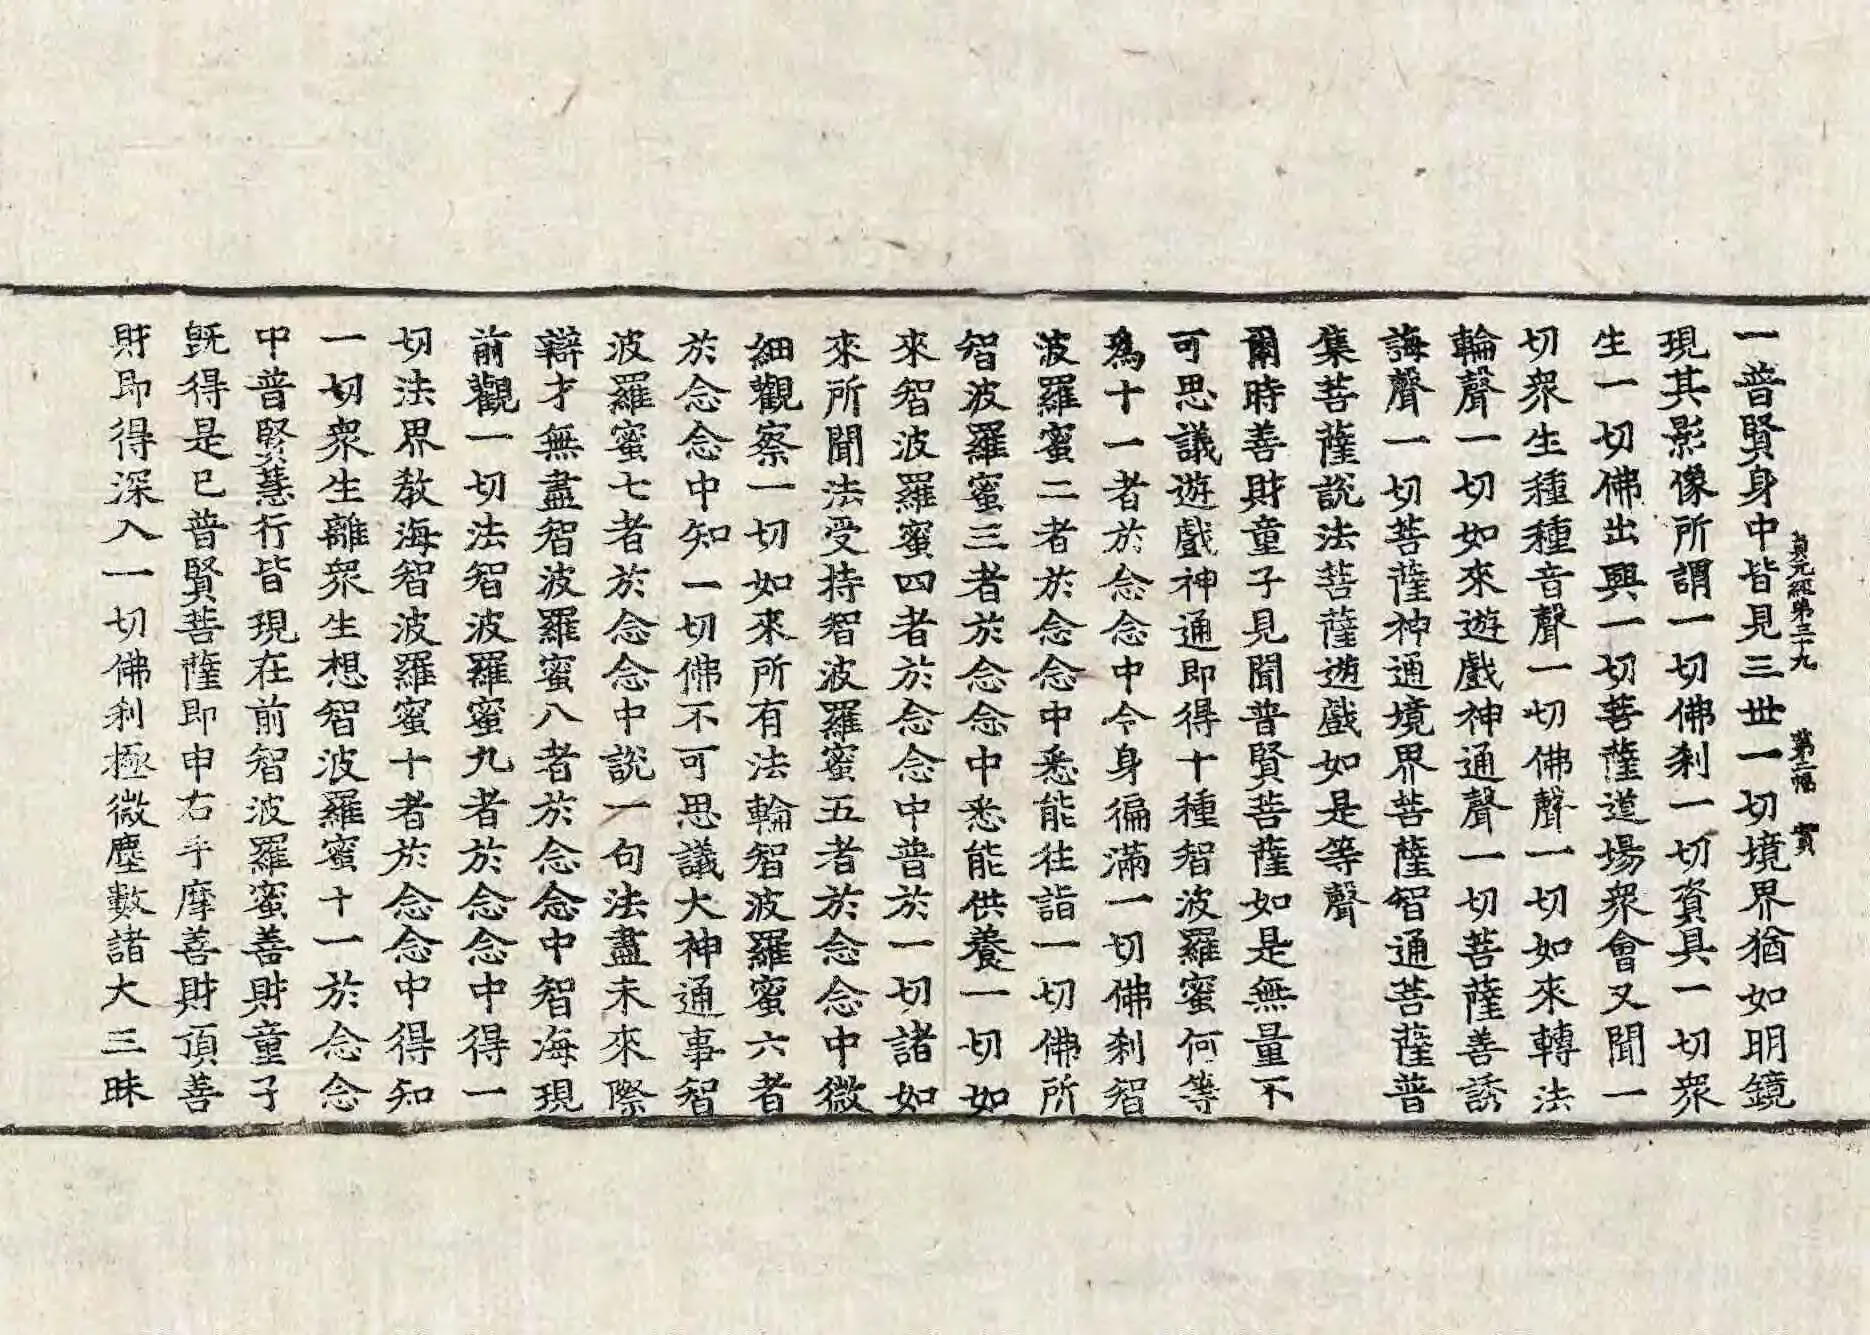 貞元經第三十九 第二幅 實
一普賢身中皆見三世一切境界猶如明鏡
現其影像所謂一切佛刹一切資具一切衆
生一切佛出興一切菩薩道場衆會又聞一
切衆生種種音聲一切佛聲一切如來轉法
輪聲一切如來遊戲神通聲一切菩薩善誘
誨聲一切菩薩神通境界菩薩智通菩薩普
集菩薩說法菩薩遊戲如是等聲
爾時善財童子見聞普賢菩薩如是無量不
可思議遊戲神通即得十種智波羅蜜何等
爲十一者於念念中令身徧滿一切佛刹智
波羅蜜二者於念念中悉能往詣一切佛所
智波羅蜜三者於念念中悉能供養一切如
來智波羅蜜四者於念念中普於一切諸如
來所聞法受持智波羅蜜五者於念念中微
細觀察一切如來所有法輪智波羅蜜六者
於念念中知一切佛不可思議大神通事智
波羅蜜七者於念念中說一句法盡未來際
辯才無盡智波羅蜜八者於念念中智海現
前觀一切法智波羅蜜九者於念念中得一
切法界教海智波羅蜜十者於念念中得知
一切衆生離衆生想智波羅蜜十一於念念
中普賢慧行皆現在前智波羅蜜善財童子
旣得是已普賢菩薩即申右手摩善財頂善
財即得深入一切佛刹極微塵數諸大三昧